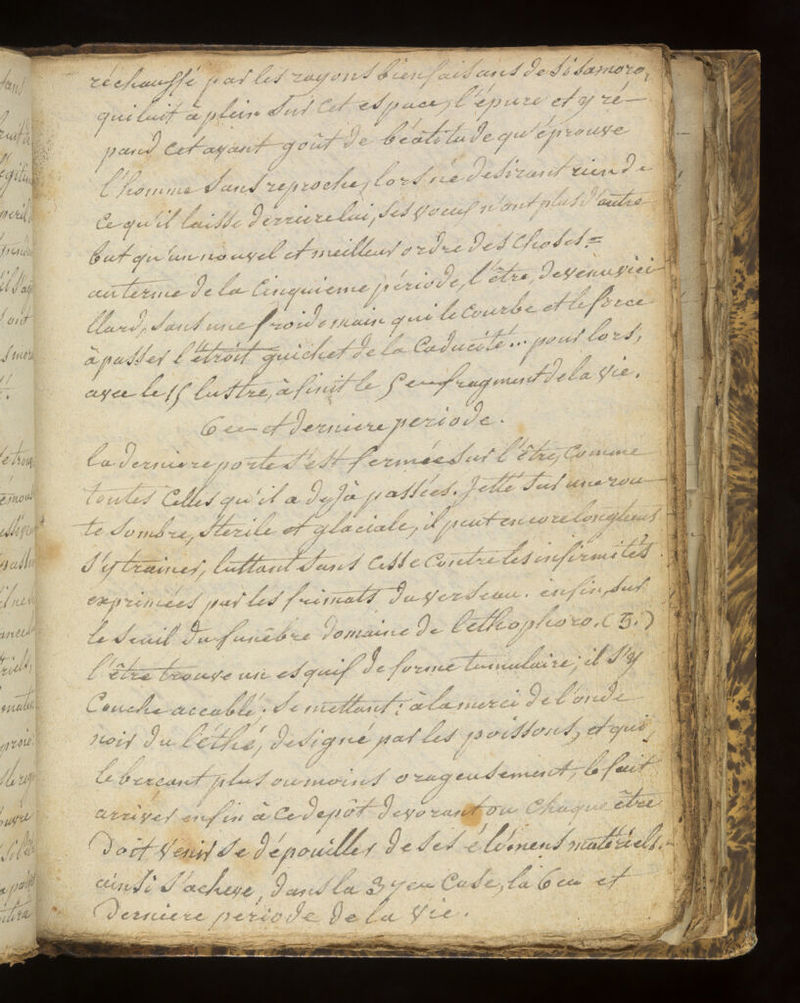 réchauffé par les rayons bienfaisans de Sisamoro,
qui luit à plein sur cet espace, l'épure et y ré-
pand cet avant goût de béatitude qu'éprouve
l'homme sans reproche, lors ne desirant rien de
ce qu'il laisse derriere lui, ses voeux n'ont plus d'autre
but qu'un nouvel et meilleur ordre des choses =
au terme de la cinquieme période, l'être, devenu viei
llard, sans une froide main qui le courbe et le force
à passer l'étroit guichet de la caducité... pour lors,
avec le 15 lustre, à finit le 5e fragment de la vie.
6ee et derniere periode.
la derniere porte s'est fermée sur l'être, comme
toutes celles qu'il a déjà passées. jetté sur une rou
te sombre, sterile et glaciale, il peut encore longtems
s'y trainer, luttant sans cesse contre les infirmités
exprimées par les frimats du verseau. enfin, sur
le seuil du funèbre domaine de lethophoro. (3.)
l'être trouve un esquif de forme tumulaire; il s'y
couche accablé; se mettant: à la merci de l'onde
noir du léthé, designé par les poissons, et qui,
le bercant plus ou moins orageusement, le fait
arriver enfin à ce depôt devorant ou chaque être
doit venir se dépouiller de ses élémens matériels.-
ainsi s'acheve, dans la case, la 6ee et
derniere période de la vie.